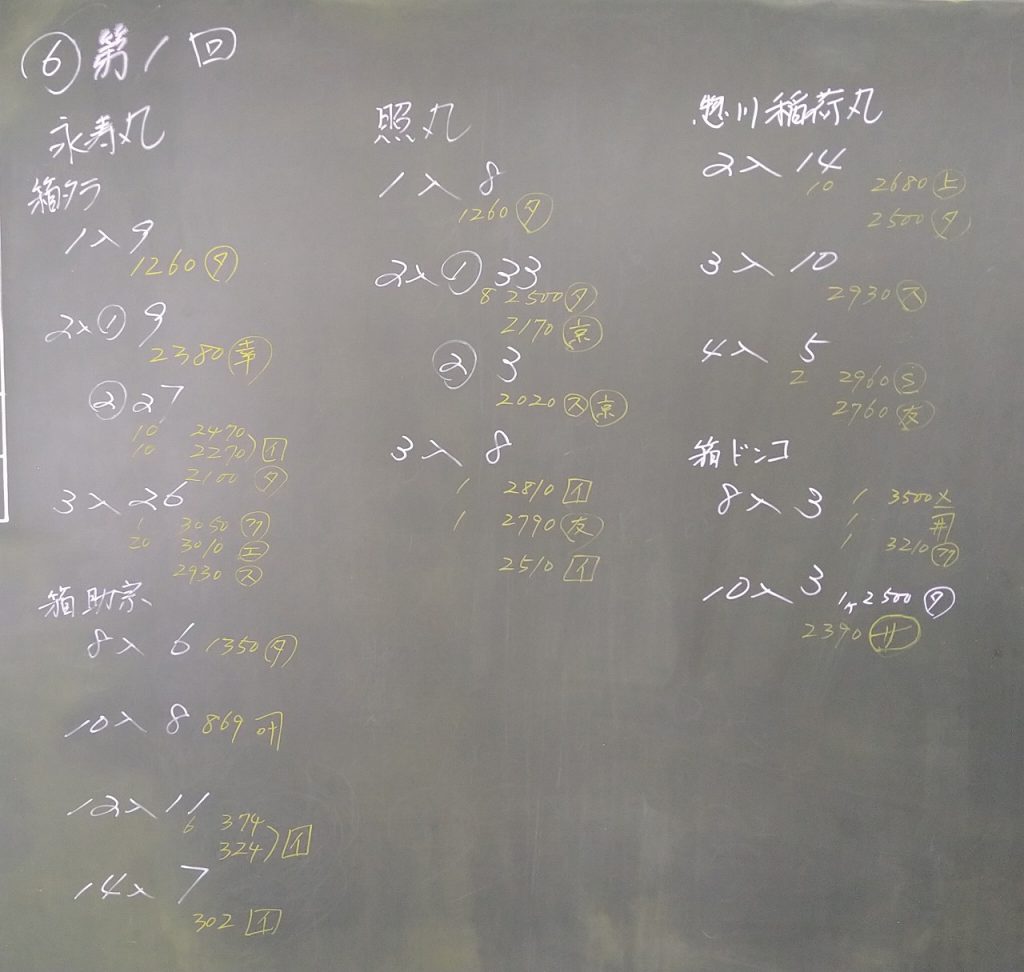 ⑥ 第1回
永寿丸
箱タラ
1入 9
1260 タ
2入 ① 9
2380 幸
② 27
10 2470
10 2270 イ
2100 タ
3入 26
1 3050 マ
20 3010 エ
2930 ス
箱助宗
8入 6 1350 タ
10入 8 869 叶
12入 11
6 374
324 イ
14入 7
302 イ
照丸
1入 8
1260 タ
2入 ① 33
8 2500 タ
2170 京
② 3
2020 ス 京
3入 8
1 2810 イ
1 2790 友
2510 イ
惣川稲荷丸
2入 14
10 2680 上
2500 タ
3入 10
2930 ス
4入 5
2 2960
2760 友
箱ドンコ
8入 3 1 3500
1 井
1 3210 マ
10入 3 1ケ 2500 タ
2390 サ